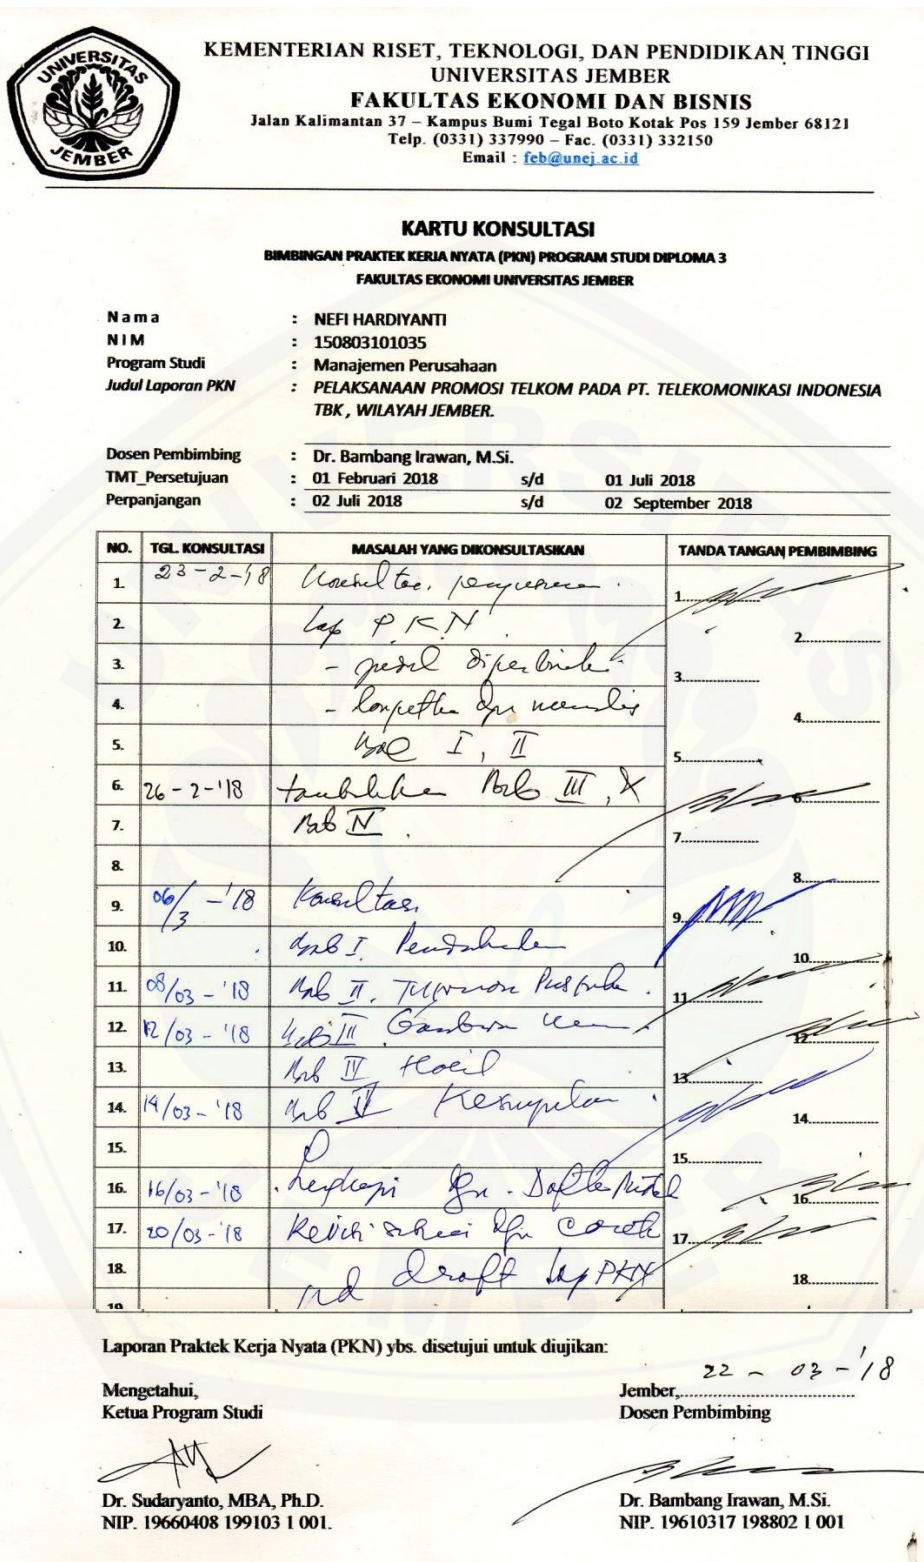 UNIVERSITAS
JEMBER
KEMENTERIAN RISET, TEKNOLOGI, DAN PENDIDIKAN TINGGI
UNIVERSITAS JEMBER
FAKULTAS EKONOMI DAN BISNIS
Jalan Kalimantan 37 – Kampus Bumi Tegal Boto Kotak Pos 159 Jember 68121
Telp. (0331) 337990 – Fac. (0331) 332150
Email : feb@unej.ac.id
KARTU KONSULTASI
BIMBINGAN PRAKTEK KERJA NYATA (PKN) PROGRAM STUDI DIPLOMA 3
FAKULTAS EKONOMI UNIVERSITAS JEMBER
Nama : NEFI HARDIYANTI
NIM : 150803101035
Program Studi : Manajemen Perusahaan
Judul Laporan PKN : PELAKSANAAN PROMOSI TELKOM PADA PT. TELEKOMONIKASI INDONESIA
TBK , WILAYAH JEMBER.
Dosen Pembimbing : Dr. Bambang Irawan, M.Si.
TMT_Persetujuan : 01 Februari 2018 s/d 01 Juli 2018
Perpanjangan : 02 Juli 2018 s/d 02 September 2018
NO. TGL. KONSULTASI MASALAH YANG DIKONSULTASIKAN TANDA TANGAN PEMBIMBING
1. 23-2-'18 1.
2. Lap PKN 2.
3. - 3.
4. - 4.
5. Bab I, II 5.
6. 26-2-'18 Bab III, 6.
7. Bab IV. 7.
8. 8.
9. 06/3-'18 Konsultasi 9.
10. Bab I. Pendahuluan 10.
11. 08/03-'18 Bab II. Tinjauan Pustaka. 11
12. 12/03-'18 Bab III Gambaran Umum 12.
13. Bab IV Hasil 13.
14. 14/03-'18 Bab V Kesimpulan. 14.
15. 15.
16. 16/03-'18 Lengkapi dgn. Daftar 16.
17. 20/03-'18 Revisi sesuai dgn 17.
18. draft Lap PKN 18.
19
Laporan Praktek Kerja Nyata (PKN) ybs. disetujui untuk diujikan:
Jember, 22 - 03 - '18
Mengetahui,
Ketua Program Studi
Dosen Pembimbing
Dr. Sudaryanto, MBA, Ph.D.
NIP. 19660408 199103 1 001.
Dr. Bambang Irawan, M.Si.
NIP. 19610317 198802 1 001